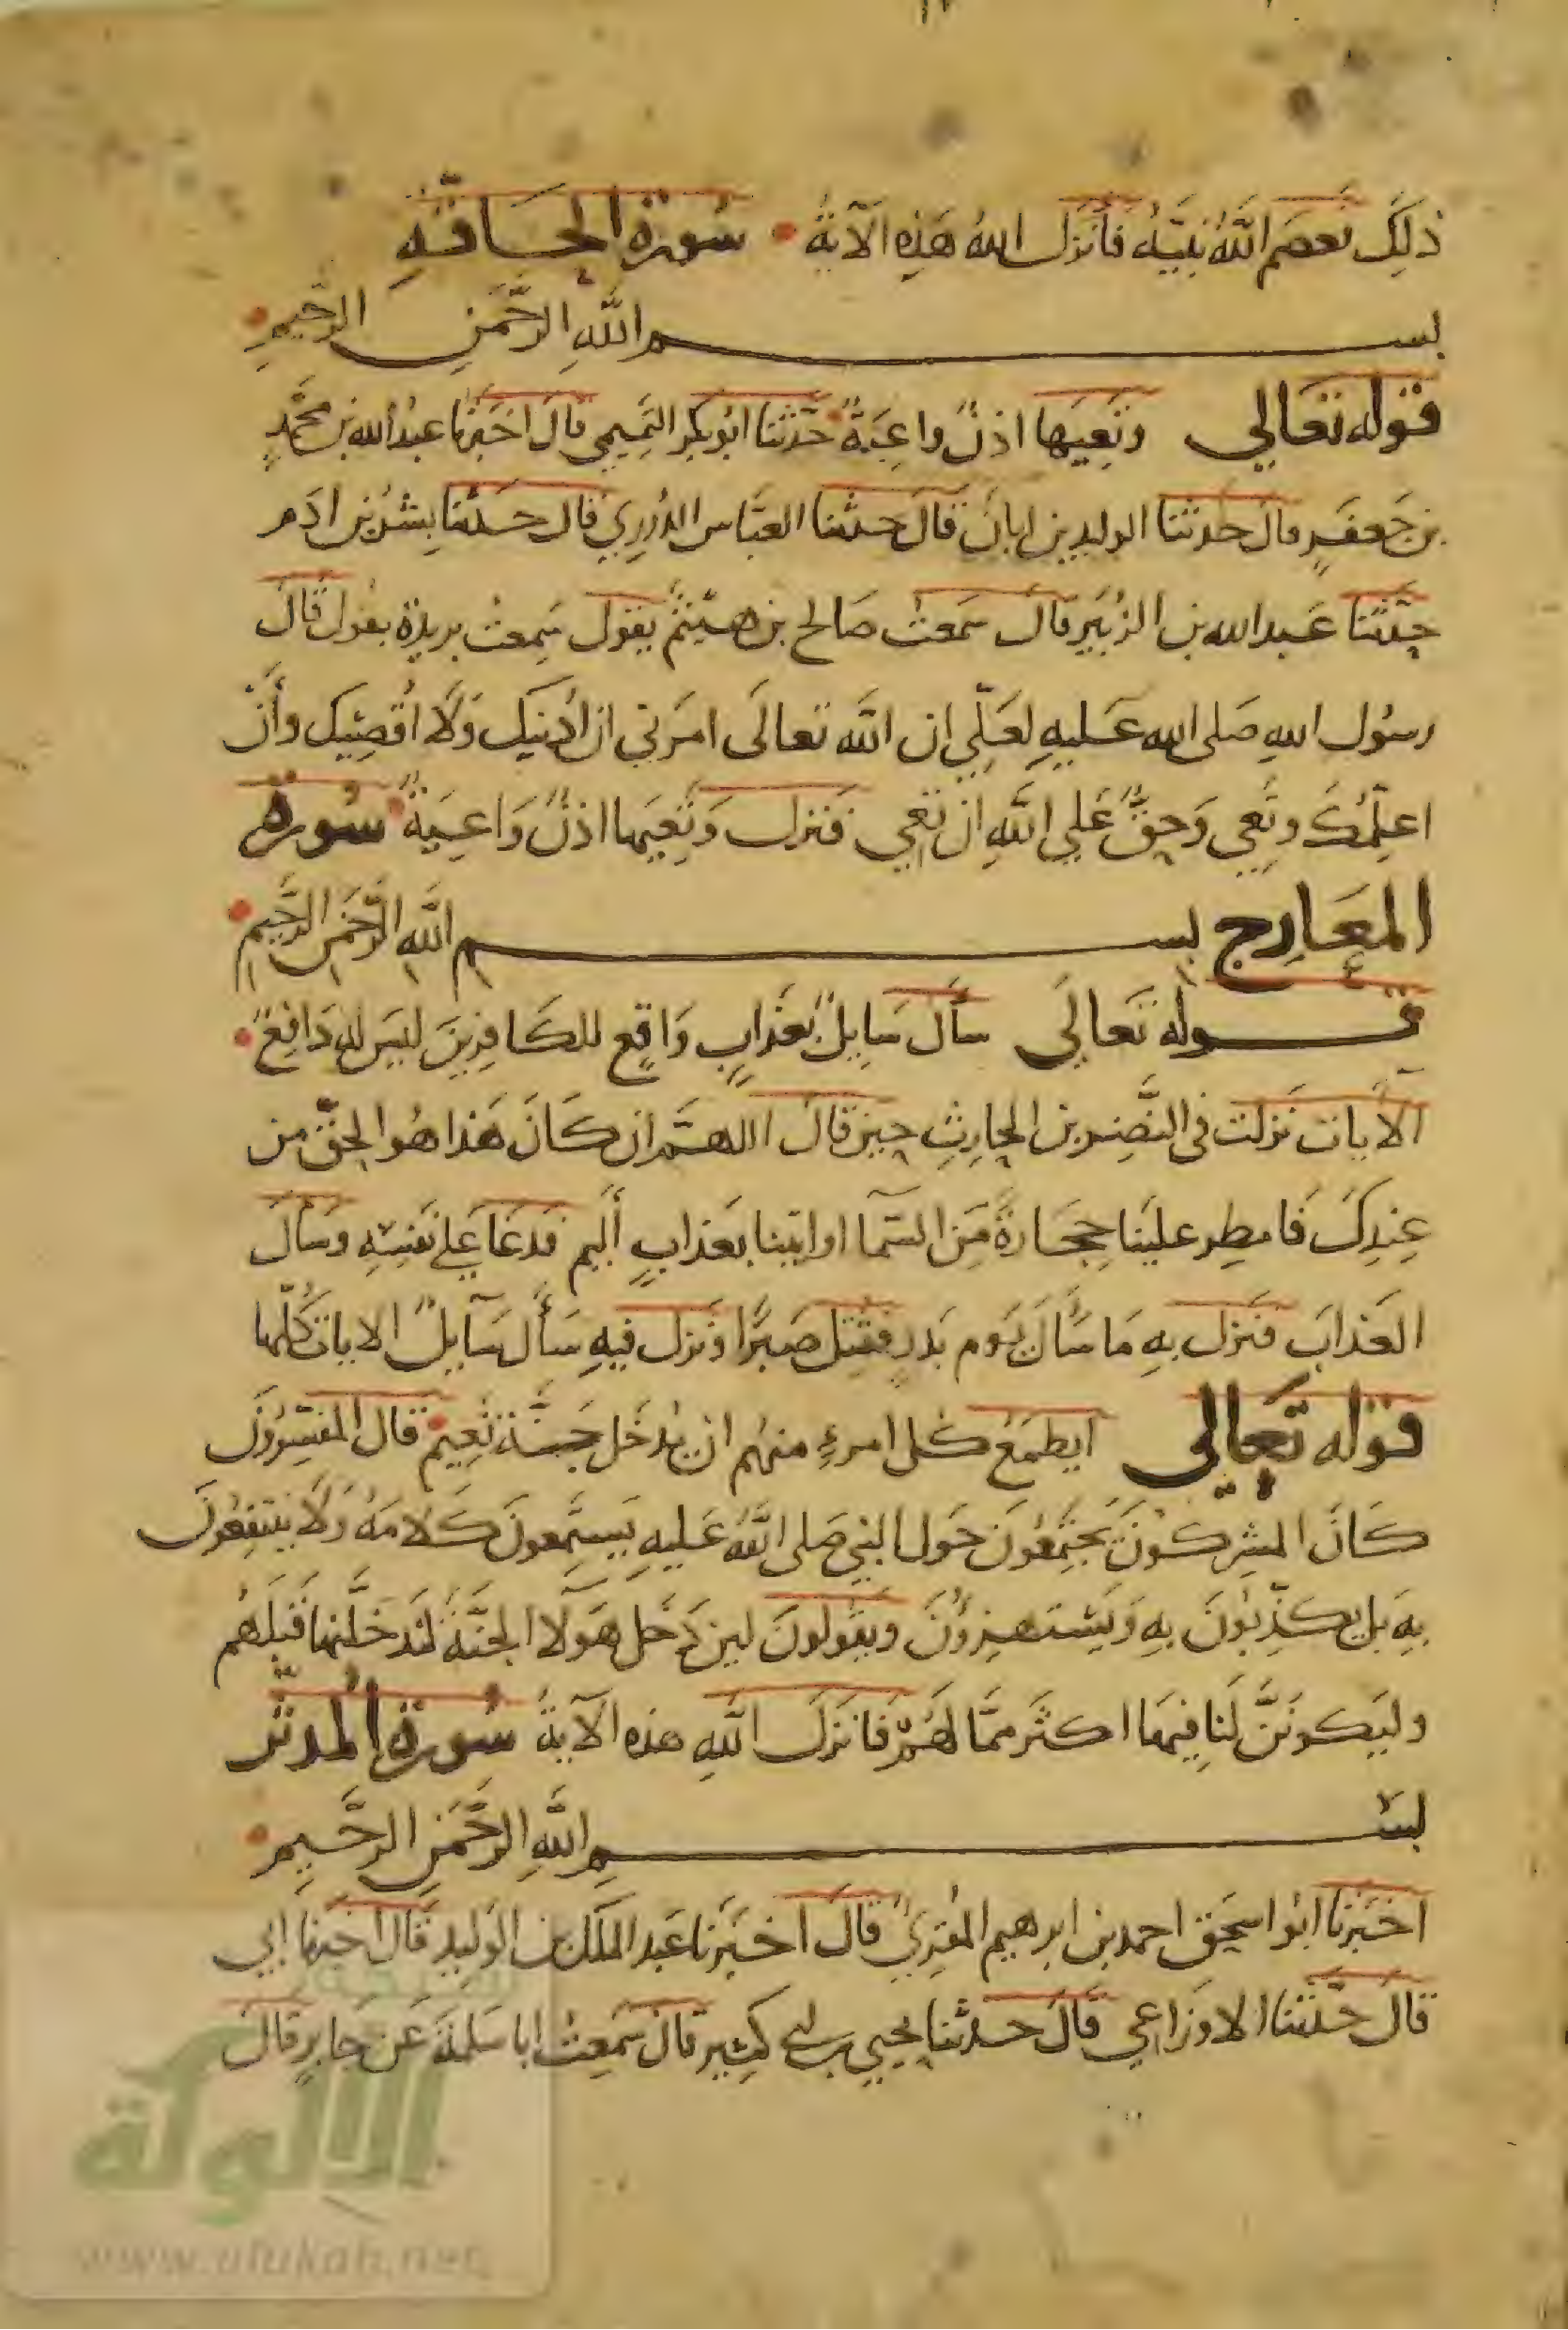 ذلك فعصم الله نبيه فانزل الله هذه الآية • سورة الحاقة
بسم الله الرحمن الرحيم •
قوله تعالى وتعيها اذن واعية • حدثنا ابو بكر التميمي قال اخبرنا عبد الله بن محمد
بن جعفر قال حدثنا الوليد بن ابان قال حدثنا العباس الدوري قال حدثنا بشر بن ادم
حدثنا عبد الله بن الزبير قال سمعت صالح بن هيثم يقول سمعت بريدة يقول قال
رسول الله صلى الله عليه لعلي ان الله تعالى امرني ان ادنيك ولا اقصيك وأن
اعلمك وتعي وحق على الله ان تعي فنزلت وتعيها اذن واعية • سورة
المعارج بسم الله الرحمن الرحيم •
قوله تعالى سأل سايل بعذاب واقع للكافرين ليس له دافع •
الآيات نزلت في النضر بن الحارث حين قال اللهم ان كان هذا هو الحق من
عندك فامطر علينا حجارة من السمآ او ايتنا بعذاب أليم فدعا على نفسه وسأل
العذاب فنزل به ما سأل يوم بدر فقتل صبرا ونزل فيه سأل سآيل الايات كلها
قوله تعالى ايطمع كل امرء منهم ان يدخل جنة نعيم • قال المفسرون
كان المشركون يجتمعون حول النبي صلى الله عليه يستمعون كلامه ولا ينتفعون
به بل يكذبون به ويستهزؤن ويقولون لين دخل هولا الجنة لندخلنها قبلهم
وليكونن لنا فيها اكثر مما لهم فانزل الله هذه الآية سورة المدثر
بسم الله الرحمن الرحيم •
اخبرنا ابو اسحق احمد بن ابرهيم المقرئ قال اخبرنا عبد الملك بن الوليد قال اخبرنا ابي
قال حدثنا الاوزاعي قال حدثنا يحيى بن ابي كثير قال سمعت ابا سلمة عن جابر قال
الألوكة
www.alukah.net